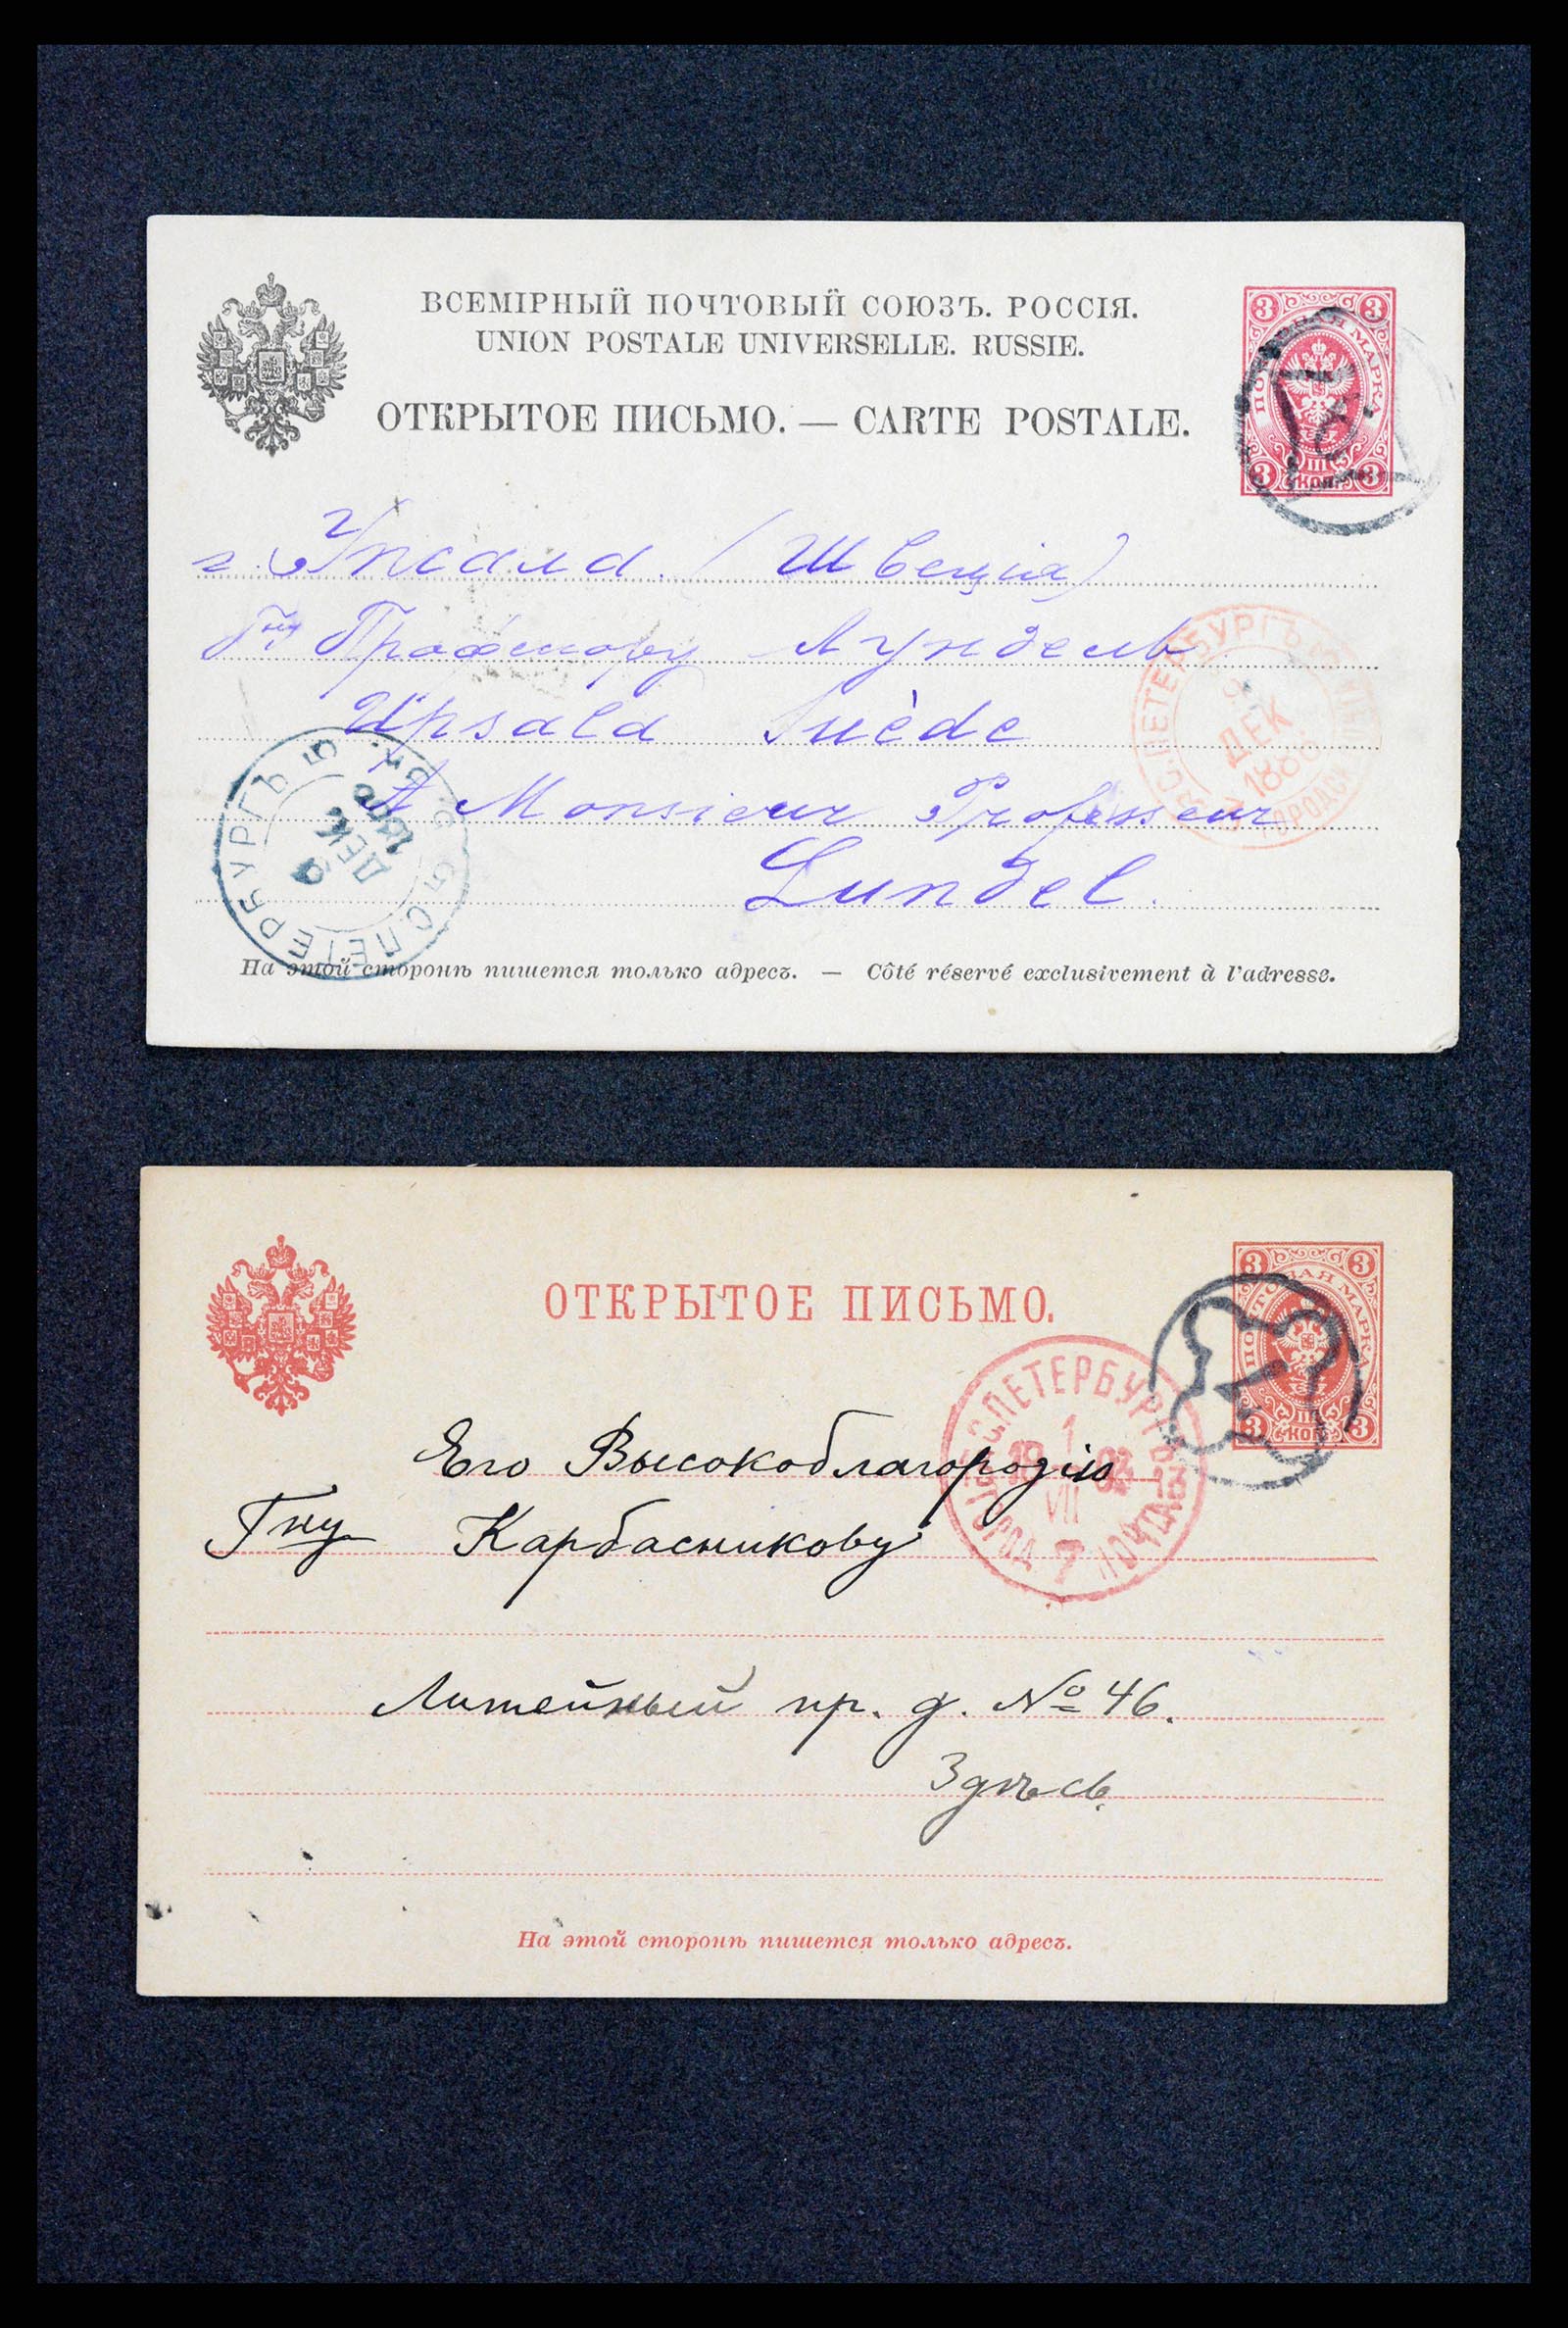 ВСЕМІРНЫЙ ПОЧТОВЫЙ СОЮЗЪ. РОССІЯ.
UNION POSTALE UNIVERSELLE. RUSSIE.
ОТКРЫТОЕ ПИСЬМО. — CARTE POSTALE.
3 3
ПОЧТОВАЯ МАРКА
III
3 КОП. 3
г. Упсала. (Швеція)
Гну Профессору Лундель
Upsala Suède
A Monsieur Professeur
Lundel.
С.ПЕТЕРБУРГЪ
ДЕК
С.ПЕТЕРБУРГЪ
ДЕК
На этой сторонѣ пишется только адресъ. — Côté réservé exclusivement à l'adresse.
ОТКРЫТОЕ ПИСЬМО.
3 3
ПОЧТОВАЯ МАРКА
III
3 КОП. 3
С.ПЕТЕРБУРГЪ
1
VII
7
ГОРОД. ПОЧТА
Его Высокоблагородію
Гну Карбасникову
Литейный пр. д. № 46.
Здѣсь.
На этой сторонѣ пишется только адресъ.